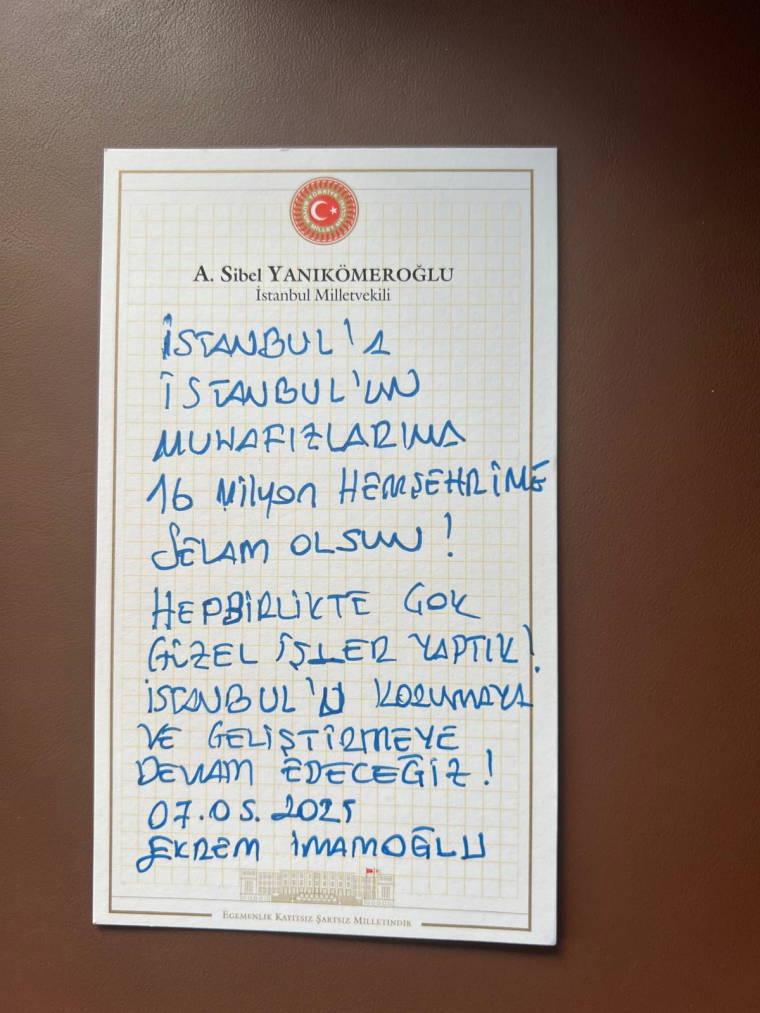 A. Sibel YANIKÖMEROĞLU
İstanbul Milletvekili
İSTANBUL'A
İSTANBUL'UN
MUHAFIZLARINA
16 Milyon HEMŞEHRİME
SELAM OLSUN!
HEPBİRLİKTE ÇOK
GÜZEL İŞLER YAPTIK!
İSTANBUL'U KORUMAYA
VE GELİŞTİRMEYE
DEVAM EDECEĞİZ!
07.05.2025
EKREM İMAMOĞLU
EGEMENLİK KAYITSIZ ŞARTSIZ MİLLETİNDİR